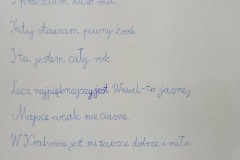 Tutaj stawiam pewny krok
I tu jestem cały rok.
Lecz najpiękniejszy jest Wawel-to jasne,
Miejsce wcale nie ciasne.
W Krakowie jest mi zawsze dobrze i miło.